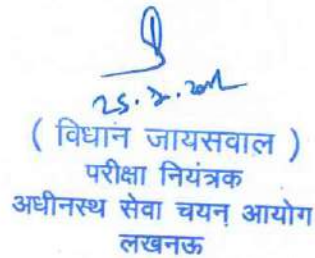 ( विधान जायसवाल )
परीक्षा नियंत्रक
अधीनस्थ सेवा चयन आयोग
लखनऊ